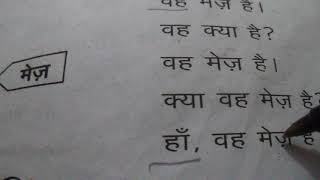 वह मेज़ है।
वह क्या है?
वह मेज़ है।
मेज़
क्या वह मेज़ है?
हाँ, वह मेज़ है